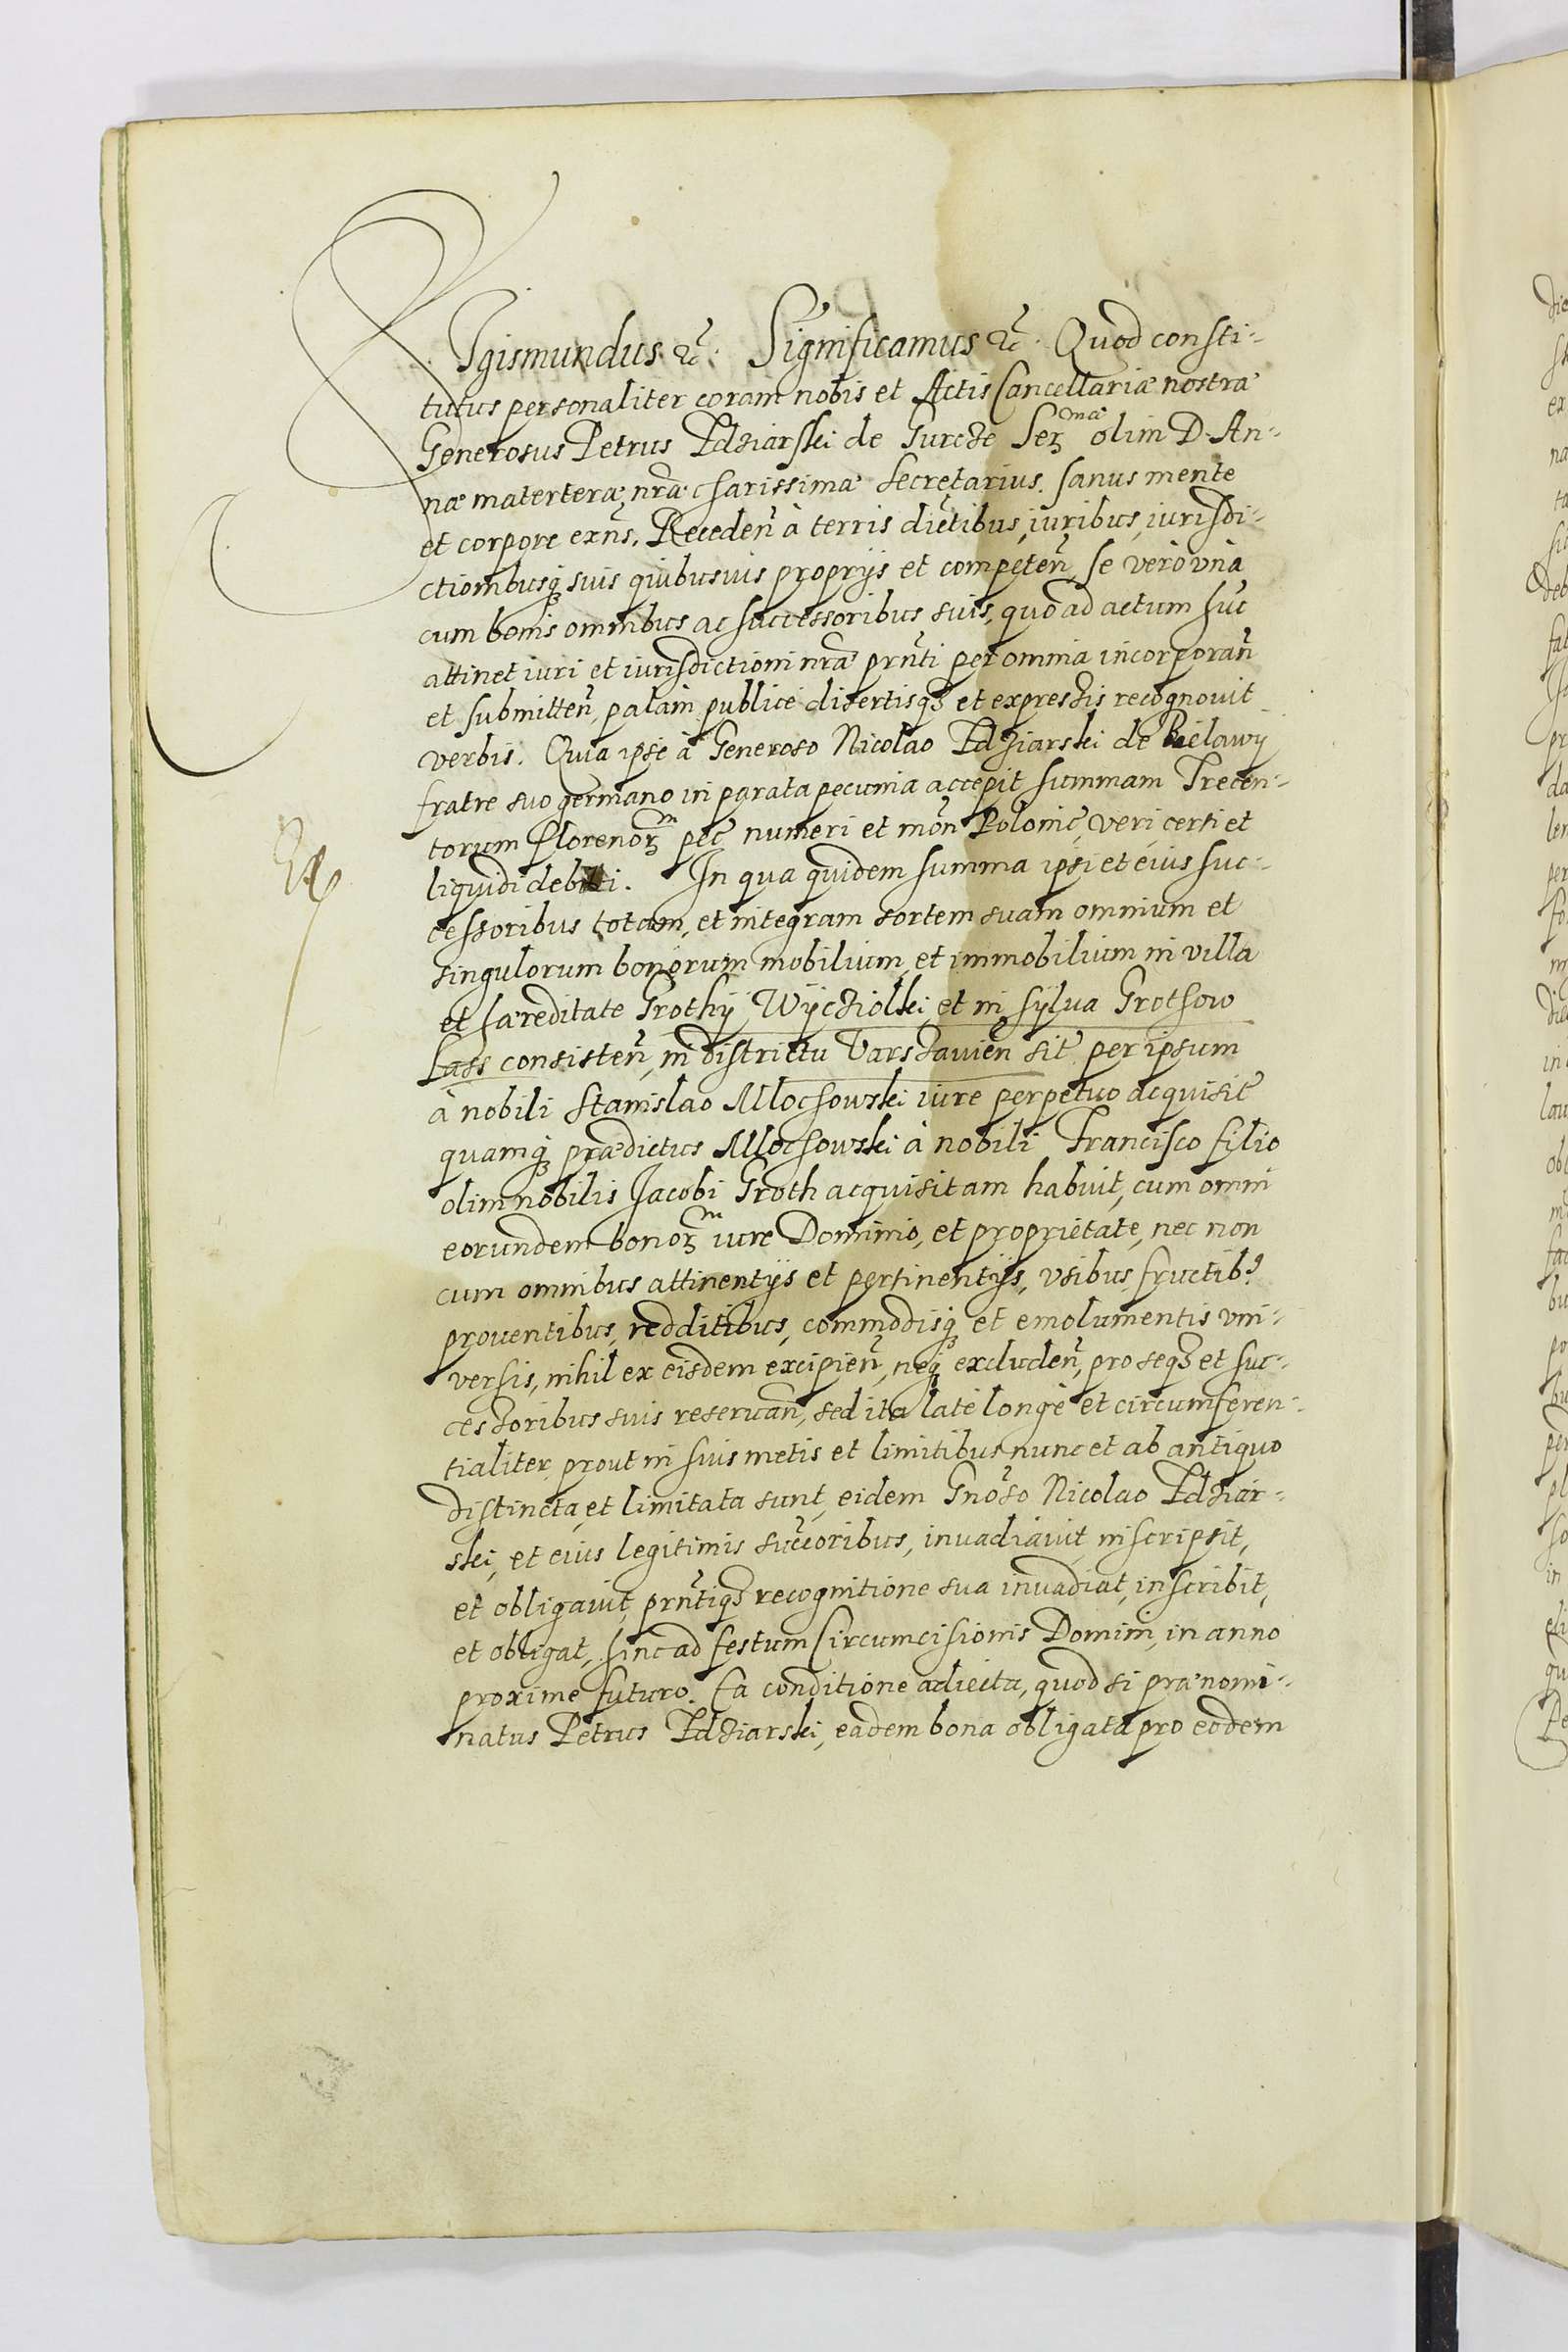 SIgismundus etc. Significamus etc. Quod consti-
tutus personaliter coram nobis et Actis Cancellariæ nostræ
Generosus Petrus Idziarski de Gurcze Ser^mæ olim D. An-
næ materteræ nræ charissimæ Secretarius. sanus mente
et corpore exns, Receden à terris distibus, iuribus, iurisdi-
ctionibusq suis quibusuis proprijs et competen, se verò vnà
cum bonis omnibus ac successoribus suis, quo ad actum huc
attinet iuri et iurisdictioni nræ prnti per omnia incorporan
et submitten, palàm publicè disertisqz et expressis recognouit
verbis. Quia ipse à Generoso Nicolao Idziarski de Bielawy
fratre suo germano in parata pecunia accepit summam Trecen-
torum Florenor^m pec numeri et mon Polonic, veri certi et
liquidi debiti. In qua quidem summa ipsi et eius suc-
cessoribus totam, et integram sortem suam omnium et
singulorum bonorum mobilium, et immobilium in villa
et hæreditate Grothÿ Wÿcziolki, et in sÿlua Grothow
Lass consisten, in districtu Varszauien sit per ipsum
à nobili Stanislao Mlochowski iure perpetuo acquisit
quamq prædictus Mlochowski à nobili Francisco filio
olim nobilis Jacobi Groth acquisitam habuit, cum omni
eorundem bonor^m iure Dominio, et proprietate, nec non
cum omnibus attinentijs et pertinentijs, vsibus, fructib9
prouentibus, redditibus, commodisq et emolumentis vni-
versis, nihil ex eisdem excipien, neq excluden, pro seqz et suc-
cessoribus suis reseruan, sed ita latè longè et circumferen-
tialiter, prout in suis metis et limitibus nunc et ab antiquo
distincta, et limitata sunt, eidem Gnoso Nicolao Idziar-
ski, et eius legitimis succoribus, inuadiauit, inscripsit,
et obligauit, prntiqz recognitione sua inuadiat, inscribit,
et obligat, hinc ad festum Circumcisionis Domini, in anno
proxime futuro. Ea conditione adiecta, quod si prænomi-
natus Petrus Idziarski, eadem bona obligata pro eodem